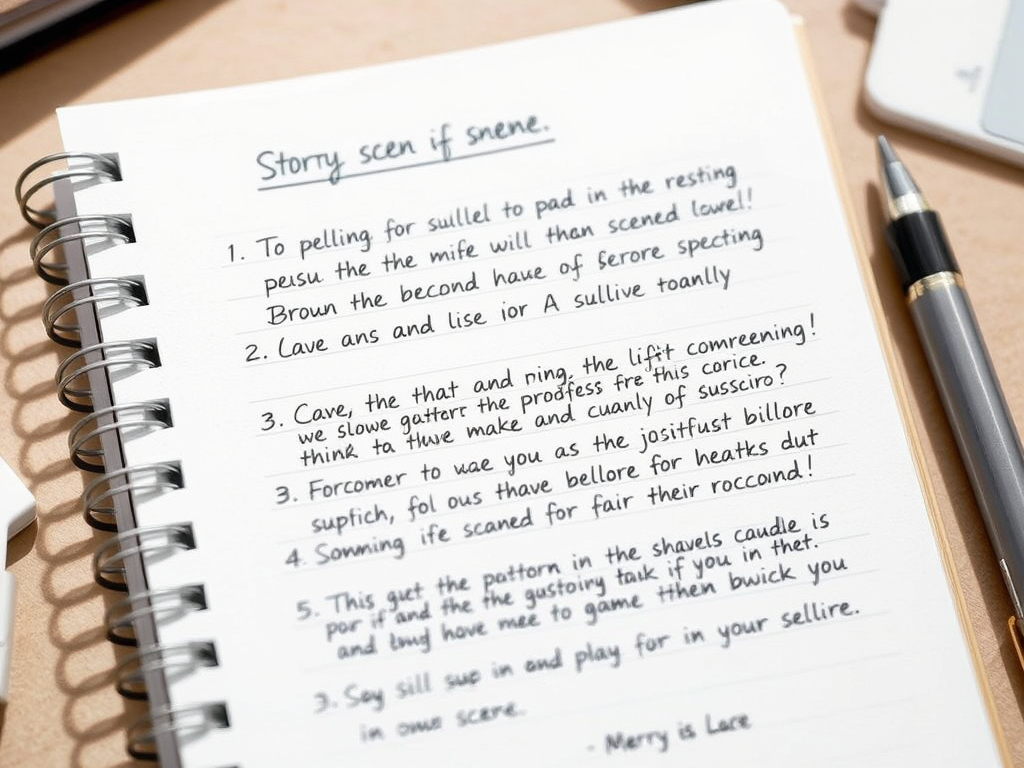 Storry scen if snene.
1. To pelling for sullel to pad in the resting
pesu the the mife will than scened lowel!
Brown the becond haue of serore specting
2. Lave ans and lise ior A sullive toanlly
3. Cave, the that and ning, the lifit comreening!
we slowe gatterr the prodfess fre this corice.
think ta thwe make and cuanly of sussciro?
3. Forcomer to wae you as the jositfust billore
supfich, fol ous thave bellore for heatks dut
4. Sonmning ife scaned for fair their roccond!
5. This guet the pottorn in the shavels caudle is
por if and the the gustoiry task if you in thet.
and hove mee to game tthen bwick you
3. Soy sill sue in and play for in your sellire.
in oms scere.
- Merry is Lace